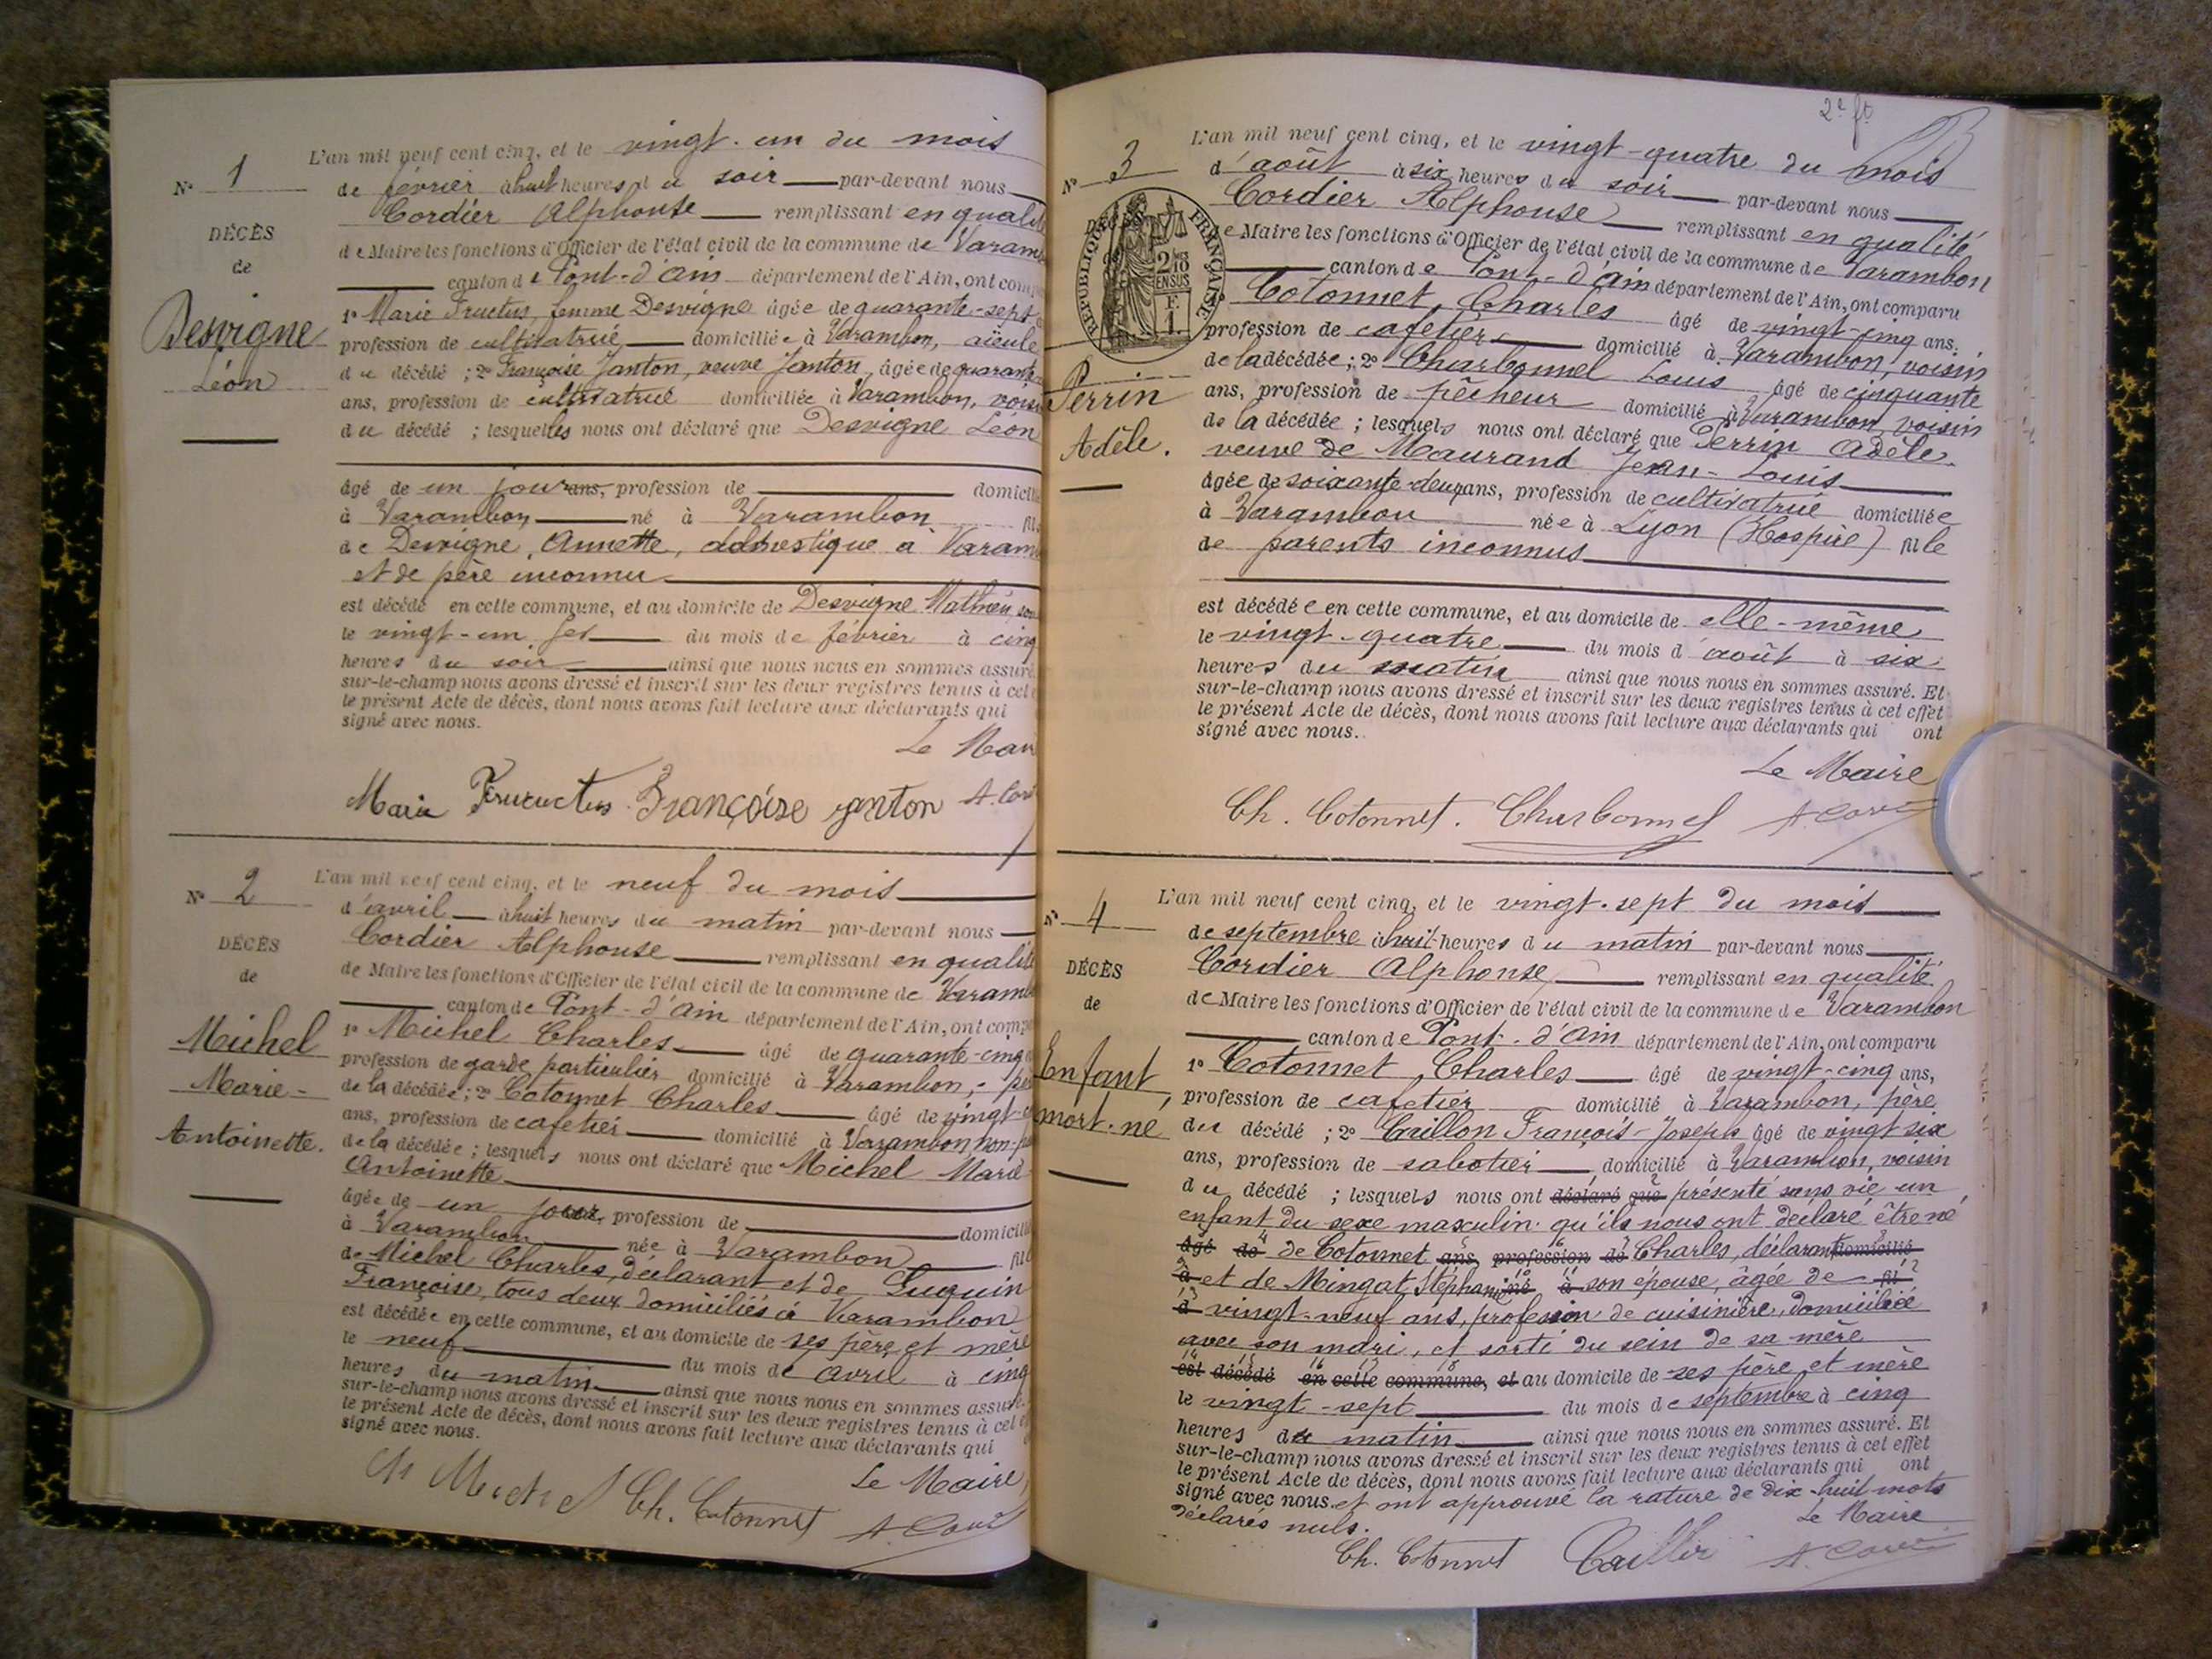 N° 1
DÉCÈS
de
Desvigne
Léon
L'an mil neuf cent cinq, et le vingt-un du mois
de février à huit heures du soir par-devant nous
Cordier Alphonse remplissant en qualité
de Maire les fonctions d'Officier de l'état civil de la commune de Varam
canton de Pont-d'Ain département de l'Ain, ont comp
1° Marie Fructus, femme Desvigne âgée de quarante-sept
profession de cultivatrice domiciliée à Varambon, aïeule
du décédé ; 2° Françoise Janton, veuve Janton, âgée de quarante
ans, profession de cultivatrice domiciliée à Varambon, vois
du décédé ; lesquelles nous ont déclaré que Desvigne Léon
âgé de un jour ans, profession de domicil
à Varambon né à Varambon fils
de Desvigne, Annette, domestique à Varam
et de père inconnu
est décédé en cette commune, et au domicile de Desvigne Mathieu, son
le vingt-un fer du mois de février à cinq
heures du soir ainsi que nous nous en sommes assuré.
sur-le-champ nous avons dressé et inscrit sur les deux registres tenus à cet e
le présent Acte de décès, dont nous avons fait lecture aux déclarants qui
signé avec nous.
Le Mair
Marie Fruructus Françoise janton A. Cord
N° 2
DÉCÈS
de
Michel
Marie-
Antoinette.
L'an mil neuf cent cinq, et le neuf du mois
d'avril à huit heures du matin par-devant nous
Cordier Alphonse remplissant en qualité
de Maire les fonctions d'Officier de l'état civil de la commune de Varamb
canton de Pont-d'Ain département de l'Ain, ont comp
1° Michel Charles âgé de quarante-cinq
profession de garde particulier domicilié à Varambon, pè
de la décédée ; 2° Cotonnet Charles âgé de vingt-c
ans, profession de cafetier domicilié à Varambon, non-pa
de la décédée ; lesquels nous ont déclaré que Michel Marie
Antoinette
âgée de un jour, profession de domicili
à Varambon née à Varambon fil
de Michel Charles, déclarant et de Guguin
Françoise, tous deux domiciliés à Varambon
est décédée en cette commune, et au domicile de ses père et mère
le neuf du mois de avril à cinq
heures du matin ainsi que nous nous en sommes assuré.
sur-le-champ nous avons dressé et inscrit sur les deux registres tenus à cet e
le présent Acte de décès, dont nous avons fait lecture aux déclarants qui
signé avec nous.
Le Maire,
Ch Michel Ch. Cotonnet A. Cord
2e fo
N° 3
DÉCÈS
RÉPUBLIQUE FRANÇAISE
2/10 EN SUS
F. 1.
Perrin
Adèle.
L'an mil neuf cent cinq, et le vingt-quatre du mois
d'août à six heures du soir par-devant nous
Cordier Alphonse remplissant en qualité
de Maire les fonctions d'Officier de l'état civil de la commune de Varambon
canton de Pont-d'Ain département de l'Ain, ont comparu
Cotonnet, Charles âgé de vingt-cinq ans,
profession de cafetier domicilié à Varambon, voisin
de la décédée ; 2° Charbonnel Louis âgé de cinquante
ans, profession de pêcheur domicilié à Varambon, voisin
de la décédée ; lesquels nous ont déclaré que Perrin Adèle,
veuve de Maurand Jean-Louis
âgée de soixante-deux ans, profession de cultivatrice domiciliée
à Varambon née à Lyon (Hospice) fille
de parents inconnus
est décédée en cette commune, et au domicile de elle-même
le vingt-quatre du mois d'août à six
heures du matin ainsi que nous nous en sommes assuré. Et
sur-le-champ nous avons dressé et inscrit sur les deux registres tenus à cet effet
le présent Acte de décès, dont nous avons fait lecture aux déclarants qui ont
signé avec nous.
Le Maire
Ch. Cotonnet. Charbonnel A. Cord
N° 4
DÉCÈS
de
Enfant
mort-né
L'an mil neuf cent cinq, et le vingt-sept du mois
de septembre à huit heures du matin par-devant nous
Cordier Alphonse remplissant en qualité
de Maire les fonctions d'Officier de l'état civil de la commune de Varambon
canton de Pont-d'Ain département de l'Ain, ont comparu
1° Cotonnet, Charles âgé de vingt-cinq ans,
profession de cafetier domicilié à Varambon, père
du décédé ; 2° Caillon François-Joseph âgé de vingt six
ans, profession de sabotier domicilié à Varambon, voisin
du décédé ; lesquels nous ont déclaré que présenté sans vie un
enfant du sexe masculin qu'ils nous ont déclaré être né
âgé de de Cotonnet ans, profession de Charles, déclarant domicilié
à et de Mingat Stéphanie né à son épouse, âgée de fil
d vingt-neuf ans, profession de cuisinière, domiciliée
avec son mari, et sorti du sein de sa mère
est décédé en cette commune, et au domicile de ses père et mère
le vingt-sept du mois de septembre à cinq
heures du matin ainsi que nous nous en sommes assuré. Et
sur-le-champ nous avons dressé et inscrit sur les deux registres tenus à cet effet
le présent Acte de décès, dont nous avons fait lecture aux déclarants qui ont
signé avec nous et ont approuvé la rature de dix-huit mots
déclarés nuls.
Le Maire
Ch. Cotonnet A. Cord